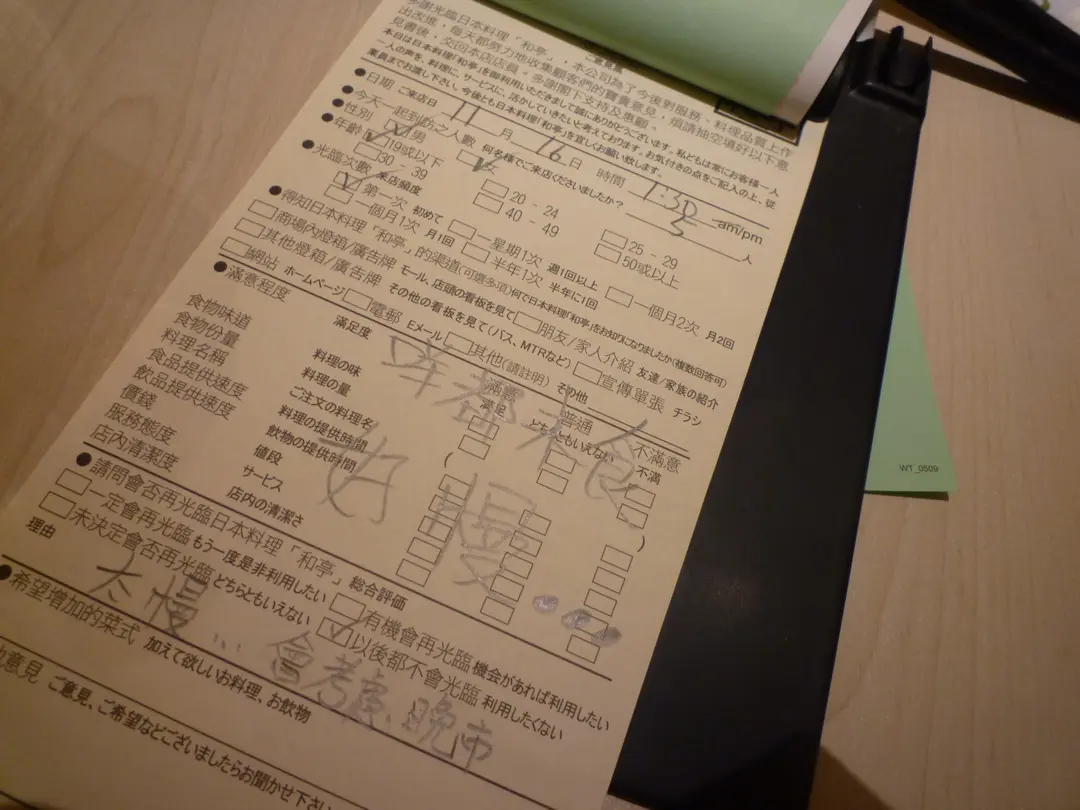 多謝光臨日本料理「和亭」，本公司為了今後對服務、料理品質上作
出改進，每天都努力地收集顧客們的寶貴意見，煩請抽空填好以下意
見書後，交回本店店員。多謝閣下支持及惠顧。
本日は日本料理「和亭」を御利用いただきまして誠にありがとうございます。私どもは常にお客様一人
一人の声を、料理に、サービスに、活かしていきたいと考えております。お気付きの点をご記入の上、従
業員までお渡し下さい。今後とも日本料理「和亭」を宜しくお願い致します。
●日期 ご来店日 11 月 16 日 時間 1:30 am/pm
●今天一起到訪之人數 何名様でご来店くださいましたか? 人
●性別 男 女
●年齡 19或以下 20 - 24 25 - 29
30 - 39 40 - 49 50或以上
●光臨次數 来店頻度
第一次 初めて 一星期1次 週1回以上 一個月2次 月2回
一個月1次 月1回 半年1次 半年に1回
●得知日本料理「和亭」的渠道(可選多項) 何で日本料理「和亭」をお知りになりましたか(複数回答可)
商場內燈箱/廣告牌 モール、店頭の看板を見て 朋友/家人介紹 友達/家族の紹介
其他燈箱/廣告牌 その他の看板を見て(バス、MTRなど) 宣傳單張 チラシ
網站 ホームページ 電郵 Eメール 其他(請註明) その他
●滿意程度 満足度 滿意 満足 普通 どちともいえない 不滿意 不満
食物味道 料理の味
食物份量 料理の量
料理名稱 ご注文の料理名 ( )
食品提供速度 料理の提供時間
飲品提供速度 飲物の提供時間
價錢 値段
服務態度 サービス
店內清潔度 店内の清潔さ
都未食
好慢...
●請問會否再光臨日本料理「和亭」 総合評価
一定會再光臨 もう一度是非利用したい 有機會再光臨 機会があれば利用したい
未決定會否再光臨 どちらともいえない 以後都不會光臨 利用したくない
理由 太慢... 會考慮晚市
●希望增加的菜式 加えて欲しいお料理、お飲物
意見 ご意見、ご希望などございましたらお聞かせ下さい
WT_0509